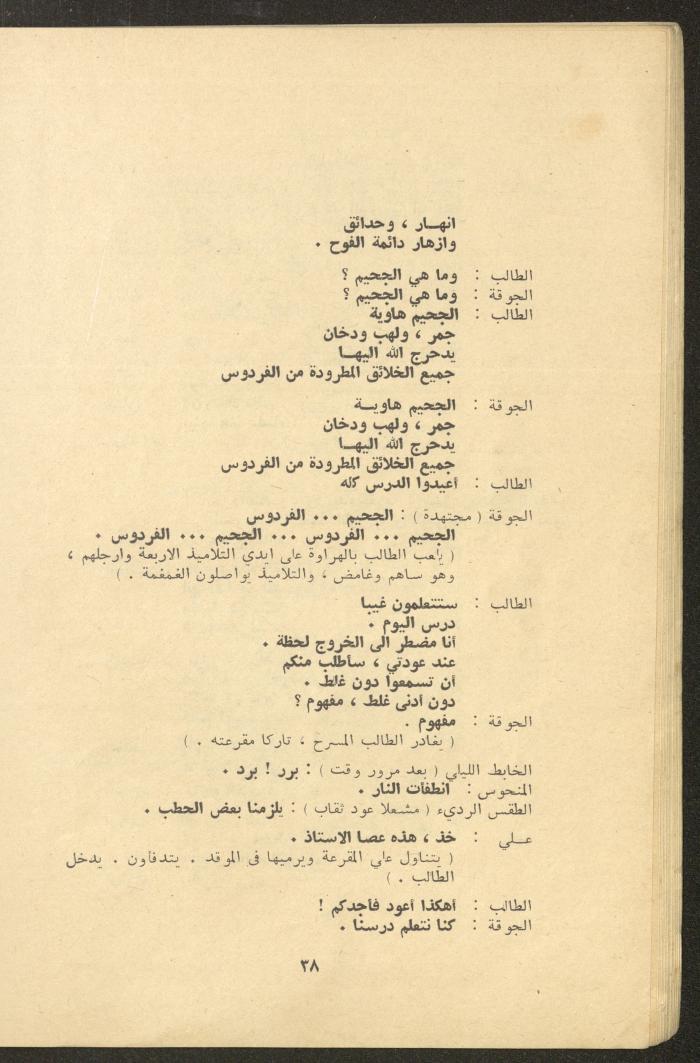 انهـــار ، وحدائق
وازهار دائمة الفوح .
الطالب : وما هي الجحيم ؟
الجوقة : وما هي الجحيم ؟
الطالب : الجحيم هاوية
جمر ، ولهب ودخان
يدحرج الله اليهـــا
جميع الخلائق المطرودة من الفردوس
الجوقة : الجحيم هاويــة
جمر ، ولهب ودخان
يدحرج الله اليهـــا
جميع الخلائق المطرودة من الفردوس
الطالب : أعيدوا الدرس كله
الجوقة ( مجتهدة ) : الجحيم ... الفردوس
الجحيم ... الفردوس ... الجحيم ... الفردوس .
( يلعب الطالب بالهراوة على ايدي التلاميذ الاربعة وارجلهم ،
وهو ساهم وغامض ، والتلاميذ يواصلون الغمغمة . )
الطالب : ستتعلمون غيبا
درس اليوم .
أنا مضطر الى الخروج لحظة .
عند عودتي ، سأطلب منكم
أن تسمعوا دون غلط .
دون أدنى غلط ، مفهوم ؟
الجوقة : مفهوم .
( يغادر الطالب المسرح ، تاركا مقرعته . )
الخابط الليلي ( بعد مرور وقت ) : برر ! برد .
المنحوس : انطفأت النار .
الطقس الرديء ( مشعلا عود ثقاب ) : يلزمنا بعض الحطب .
عــلي : خذ ، هذه عصا الاستاذ .
( يتناول علي المقرعة ويرميها في الموقد . يتدفأون . يدخل
الطالب . )
الطالب : أهكذا أعود فأجدكم !
الجوقة : كنا نتعلم درسنا .
٣٨